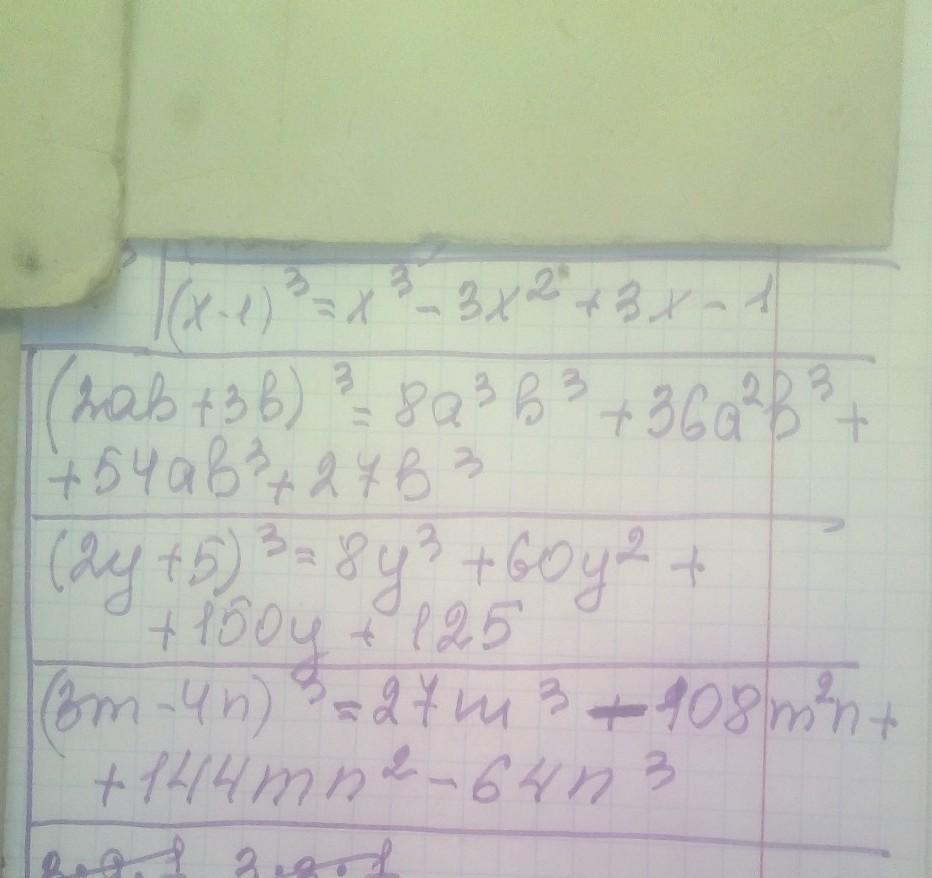 (x-1)³=x³-3x²+3x-1
(2ав+3в)³=8а³в³+36а²в³+
+54ав³+27в³
(2y+5)³=8y³+60y²+
+150y+125
(3m-4n)³=27m³-108m²n+
+144mn²-64n³